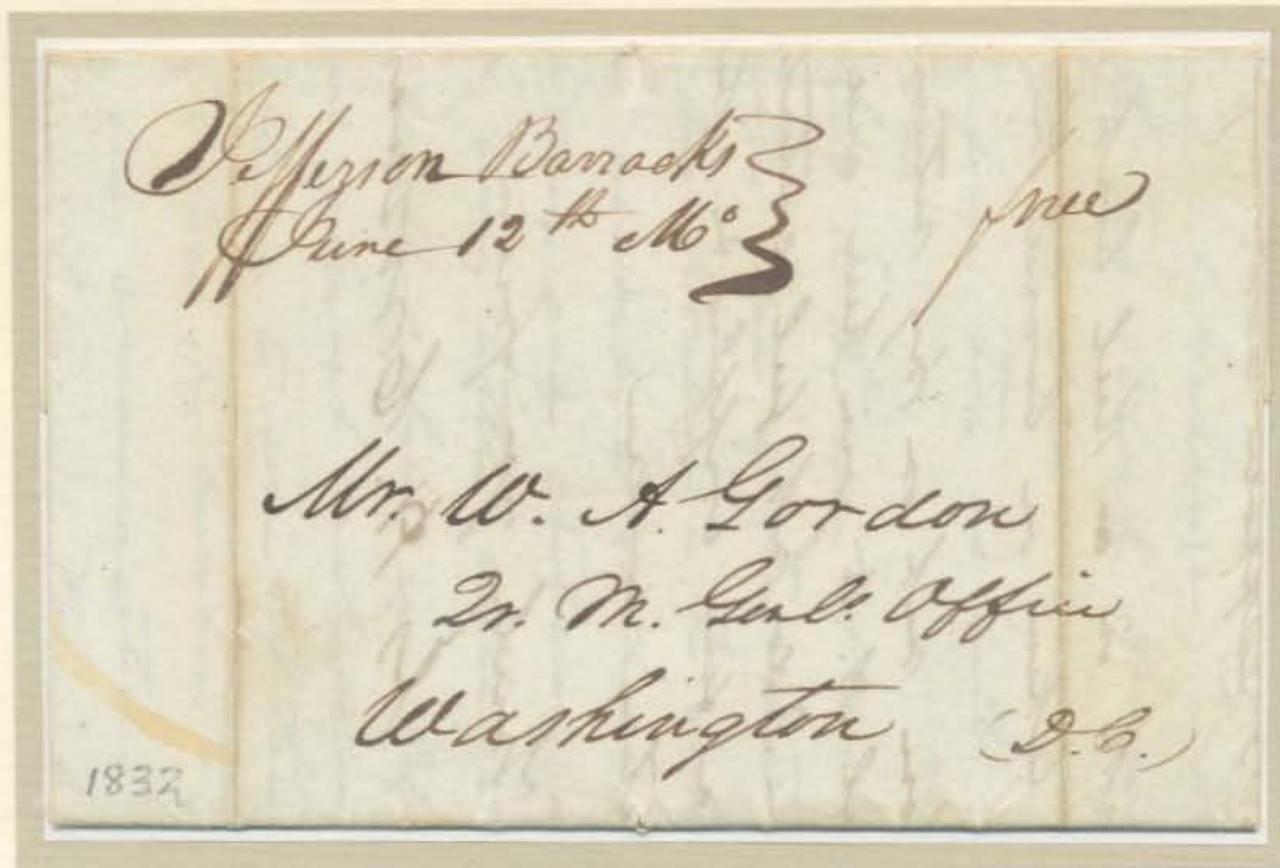 Jefferson Barracks
June 12th Mo
free
Mr. W. A. Gordon
Qr. M. Genls. Office
Washington (D.C.)
1832